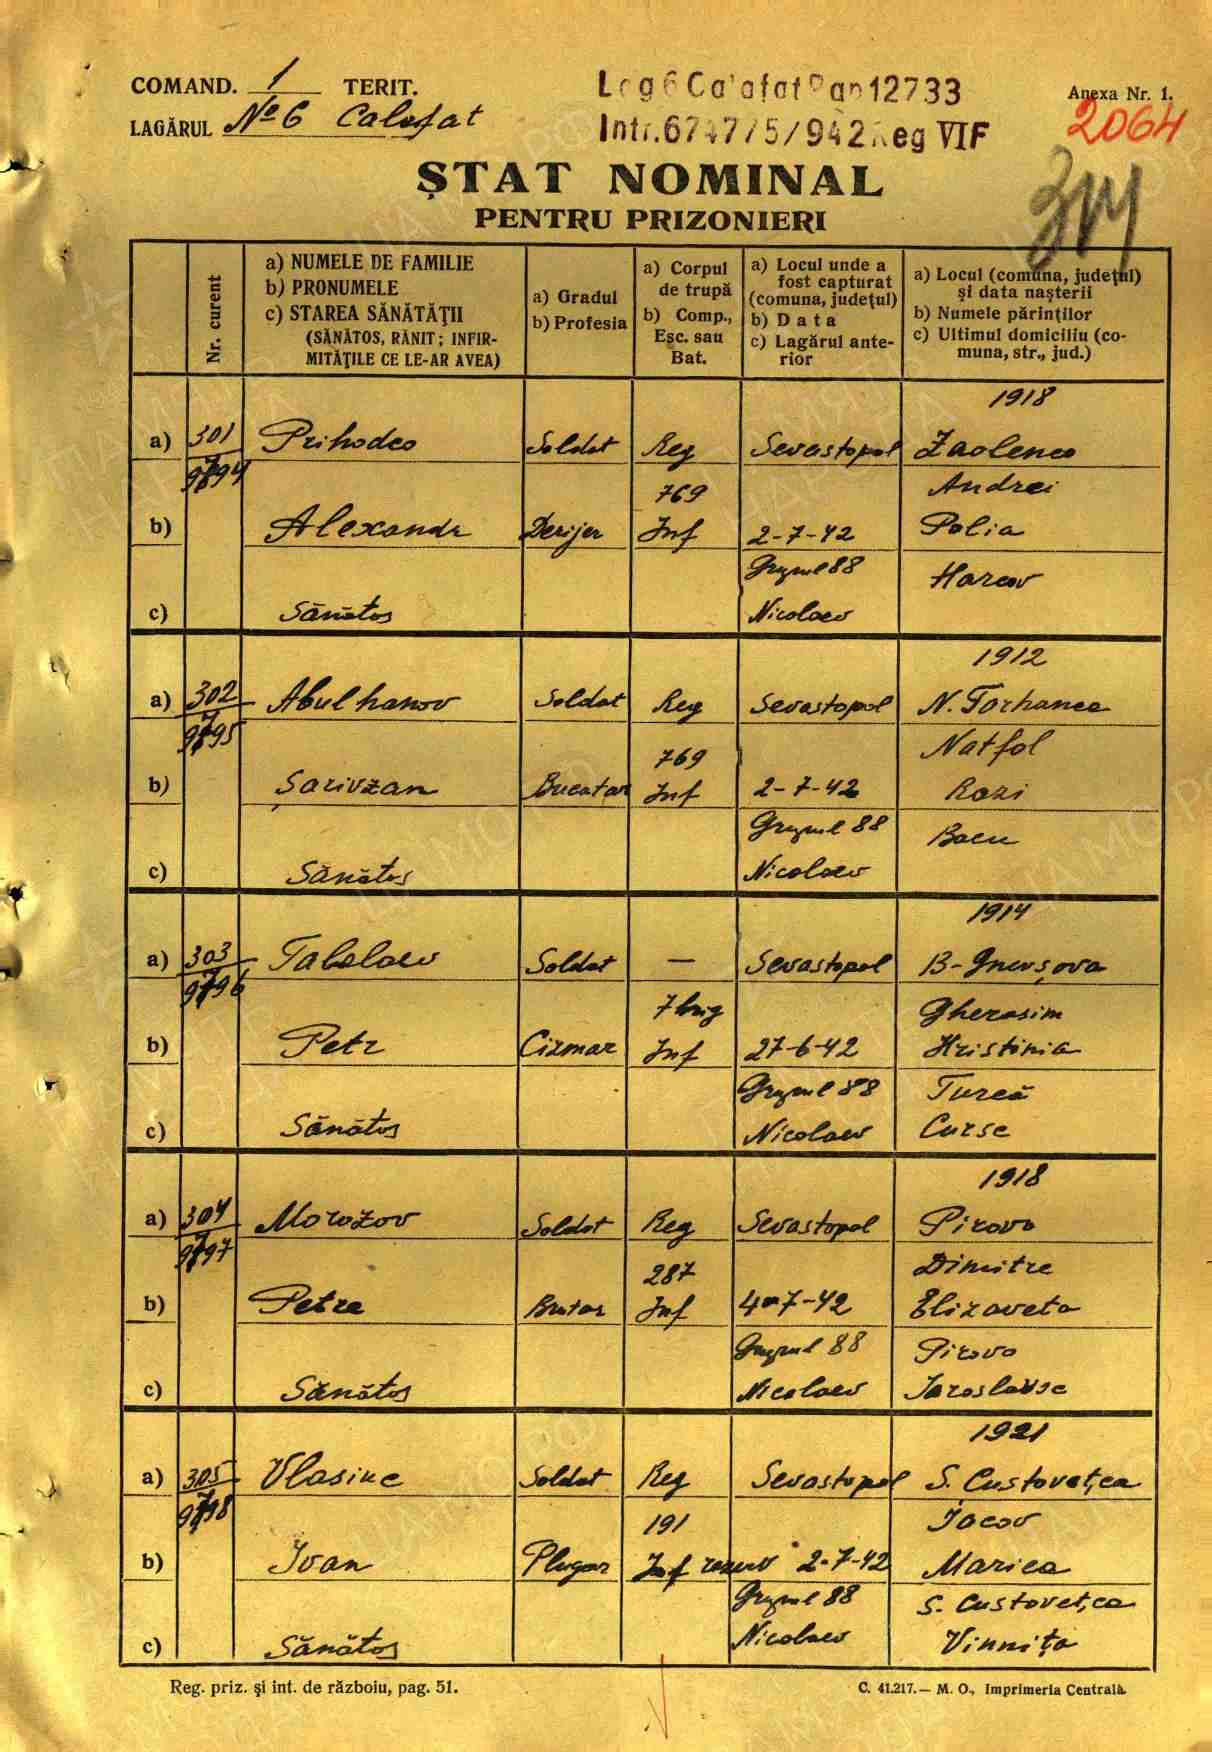 COMAND. 1 TERIT.
LAGĂRUL No 6 Calafat
Lag 6 Calafat Pag 12733
Intr. 6747/5/942 Reg VIF
Anexa Nr. 1.
2064
ȘTAT NOMINAL
PENTRU PRIZONIERI
Nr. curent
a) NUMELE DE FAMILIE
b) PRONUMELE
c) STAREA SĂNĂTĂȚII
(SĂNĂTOS, RĂNIT; INFIR-
MITĂȚILE CE LE-AR AVEA)
a) Gradul
b) Profesia
a) Corpul
de trupă
b) Comp.,
Esc. sau
Bat.
a) Locul unde a
fost capturat
(comuna, județul)
b) Data
c) Lagărul ante-
rior
a) Locul (comuna, județul)
și data nașterii
b) Numele părinților
c) Ultimul domiciliu (co-
muna, str., jud.)
1918
a) 301 Prihodco Soldat Reg Sevastopol Zaolenco
9794 769 Andrei
b) Alexandr Inf 2-7-42 Polia
Grupul 88 Harcov
c) Sănătos Nicolaev
1912
a) 302 Abulhanov Soldat Reg Sevastopol N. Torhanca
9795 769 Natfol
b) Șarivzan Bucatar Inf 2-7-42 Rozi
Grupul 88 Bacu
c) Sănătos Nicolaev
1914
a) 303 Tabolaev Soldat — Sevastopol B-Gnevșova
9796 7 brig Gherasim
b) Petr Cizmar Inf 27-6-42 Hristinia
Grupul 88 Turcă
c) Sănătos Nicolaev Curse
1918
a) 304 Morozov Soldat Reg Sevastopol Pirovo
9797 287 Dimitre
b) Petre Brutar Inf 4-7-42 Elizaveta
Grupul 88 Pirovo
c) Sănătos Nicolaev Iaroslavse
1921
a) 305 Vlasiuc Soldat Reg Sevastopol S. Custovețca
9798 191 Iacov
b) Ivan Plugar Inf rezerv 2-7-42 Marica
Grupul 88 S. Custovețca
c) Sănătos Nicolaev Vinnița
Reg. priz. și int. de războiu, pag. 51.
C. 41.217.— M. O., Imprimeria Centrală.